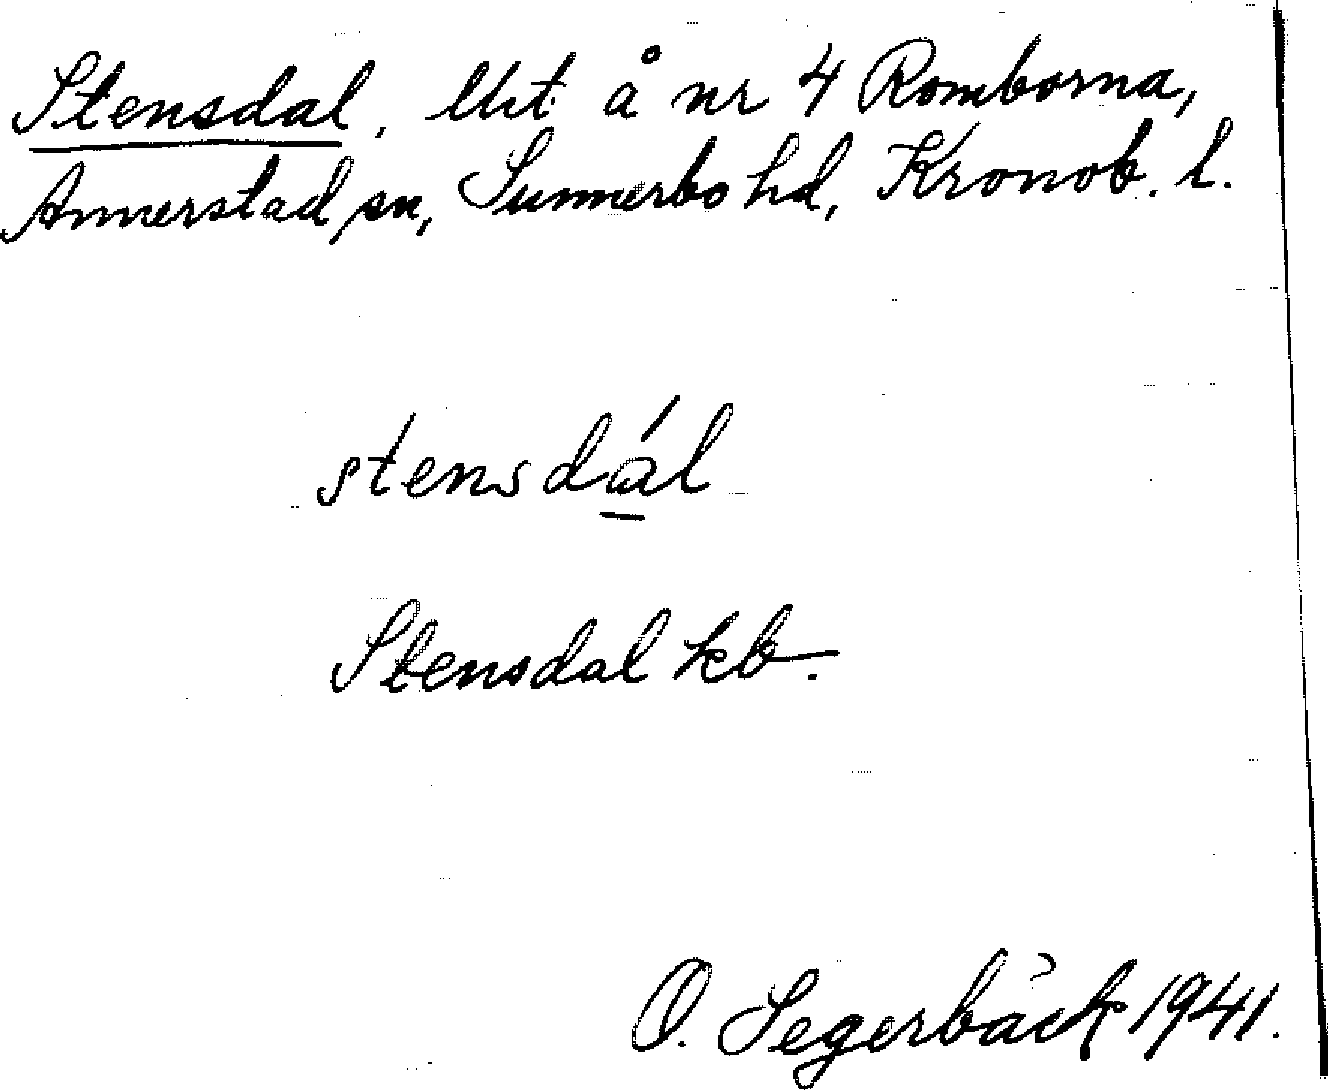 Stensdal, Utt å nr 4 Romborna,
Annerstad sn, Sunnerbo hd, Kronob. l.
stensdál
Stensdal kb.
O. Segerbäck 1941.